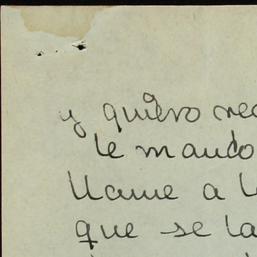 y quiero rec
le mando
llame a l
que se la